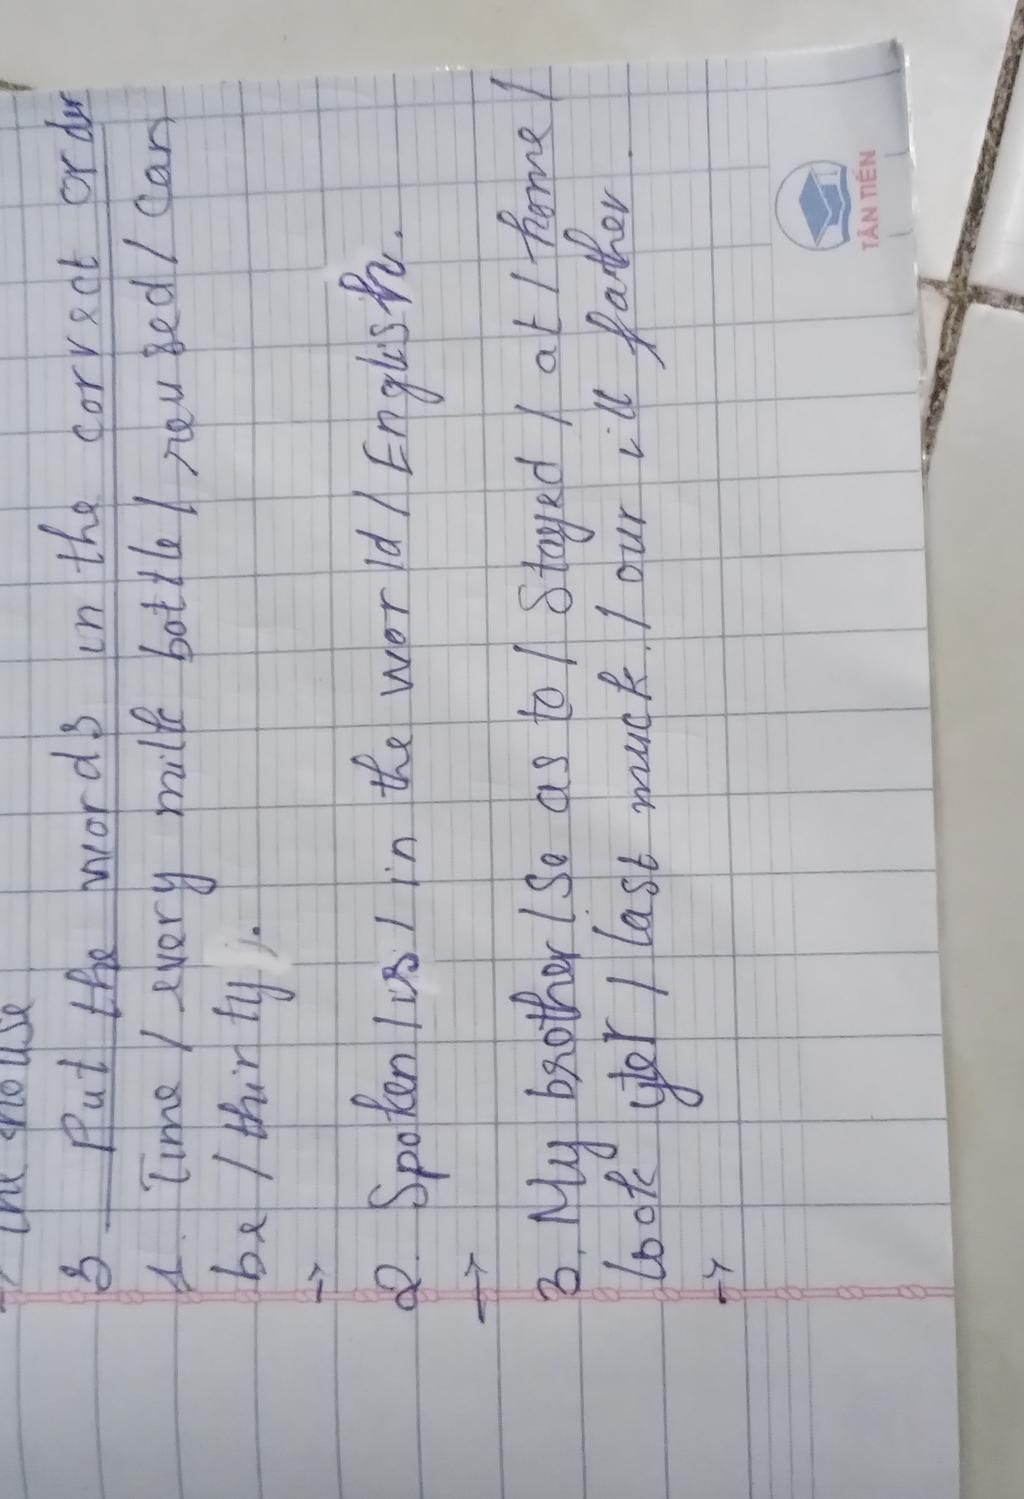 The mouse
3 Put the words in the correct order
1. Time / every milk bottle / reused / can
be / thirty /.
→
2. Spoken / is / in the world / English.
→
3. My brother / so as to / Stayed / at / home /
look yter / last muck / our ill father.
→
TÂN TIẾN